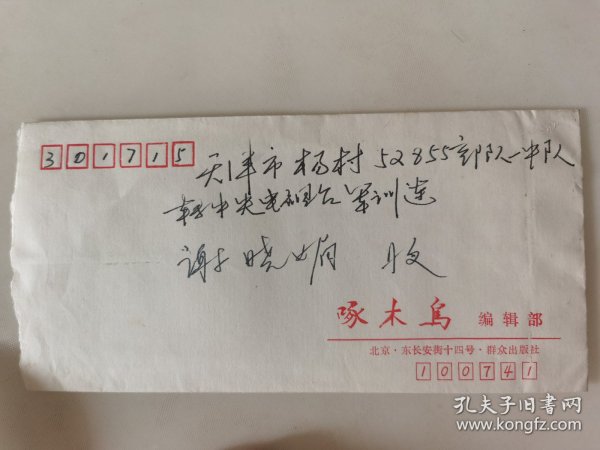 301715
天津市杨村52855部队一中队
转中央电视台军训连
谢晓娟 收
啄木鸟 编辑部
北京·东长安街十四号·群众出版社
100741
孔夫子旧书网
www.kongfz.com